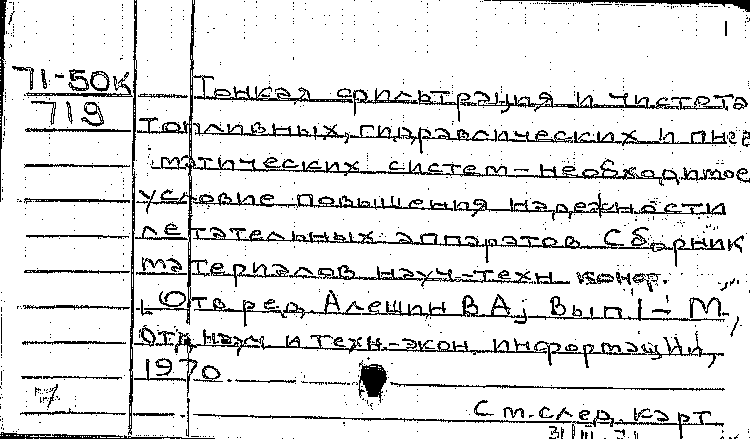 1
71-50К Тонкая фильтрация и чистота
719 топливных, гидравлических и пнев
матических систем - необходимое
условие повышения надежности
летательных аппаратов Сборник
материалов науч-техн конф.
Отв ред Алешин В А; Вып 1 - М,
отд науч и техн.-экон. информации,
1970.
См. след. карт